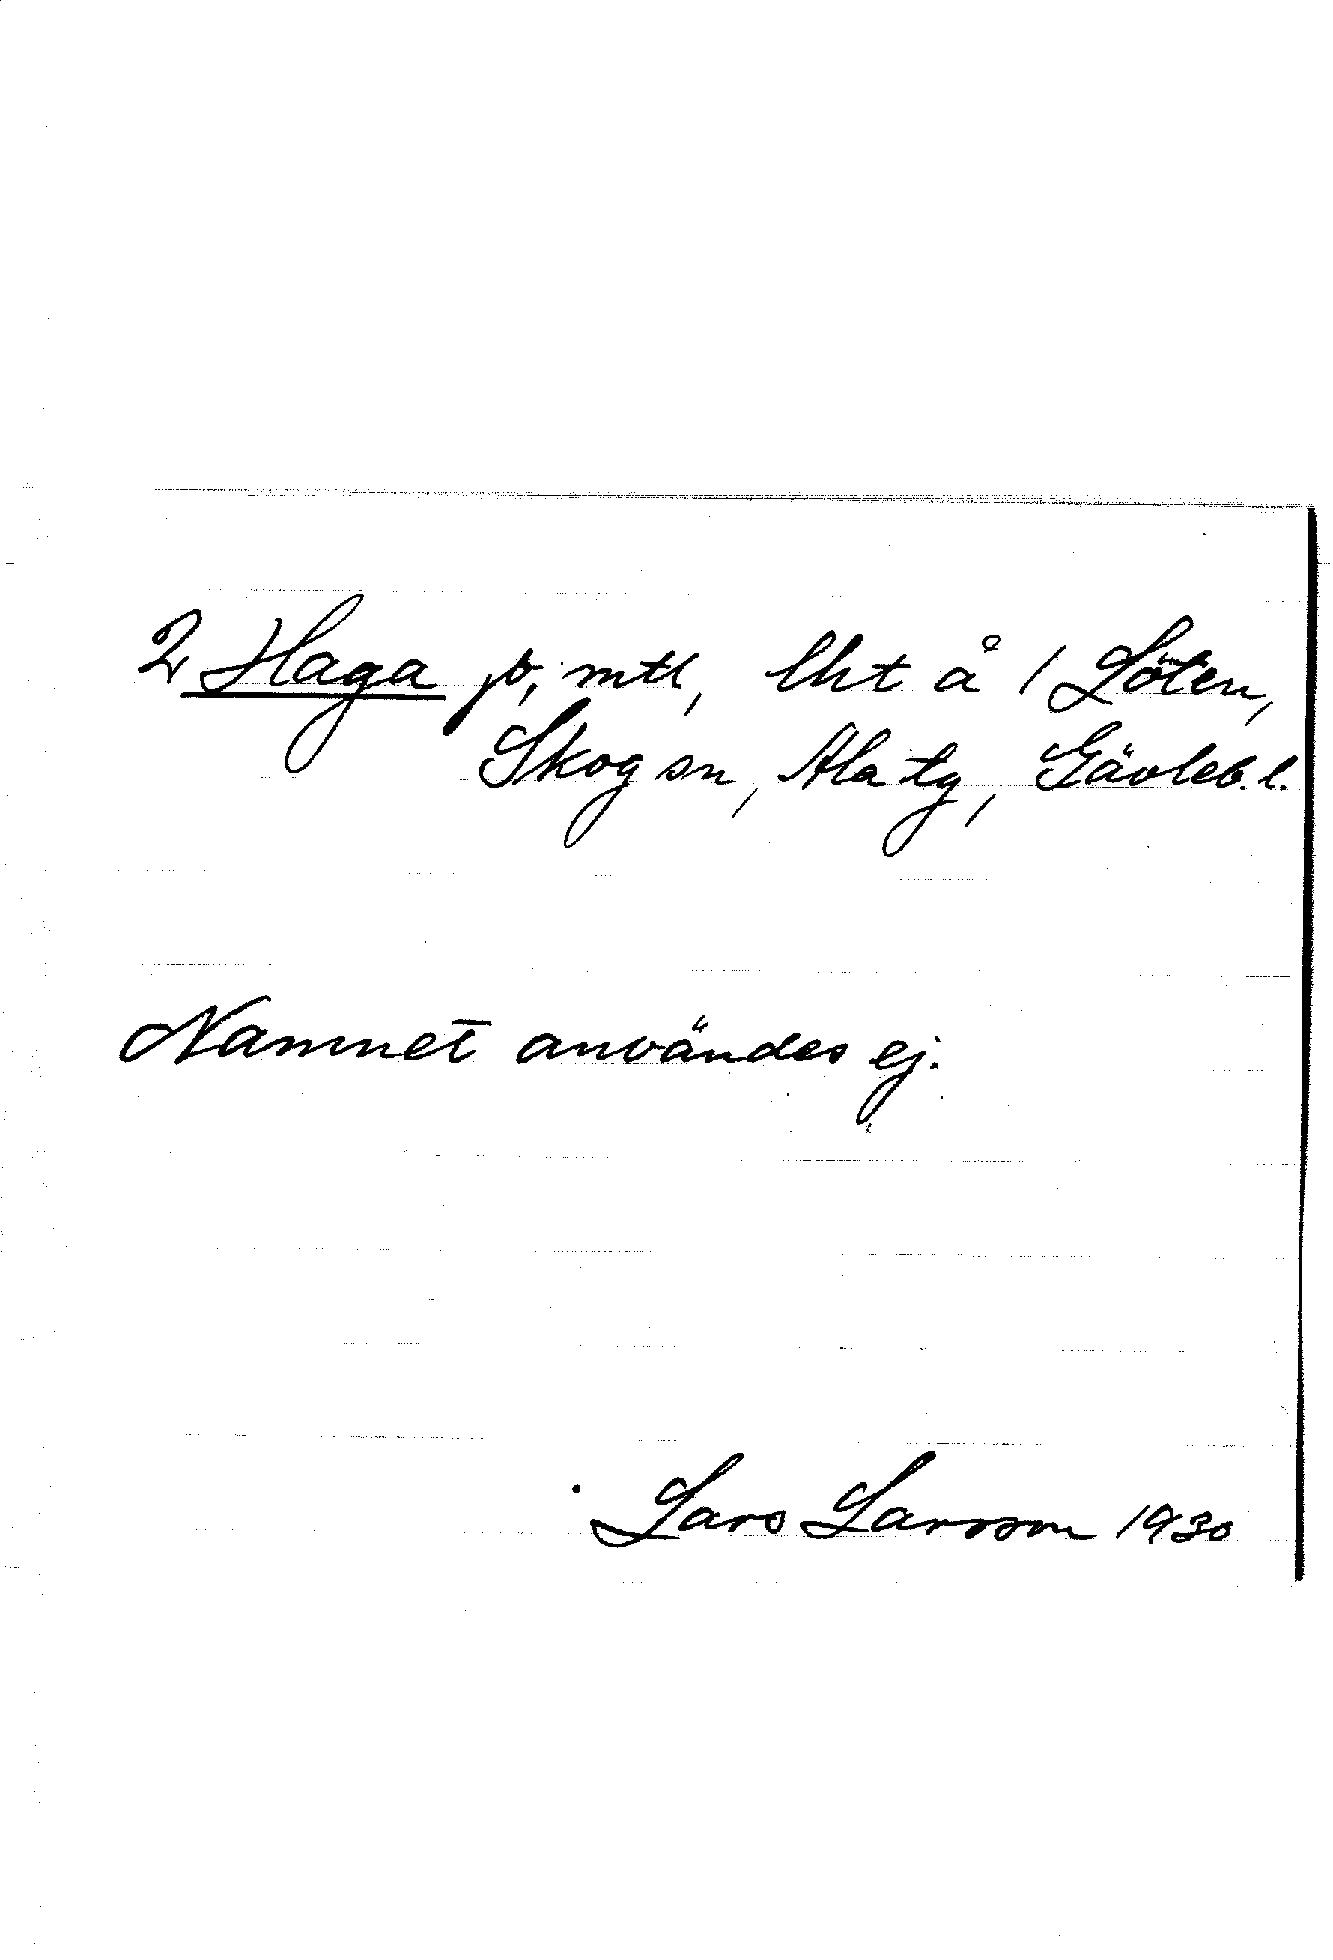 2 Haga p, mtl, lht å 1 Löten,
Skog sn, Ala tg, Gävleb. l.
Namnet användes ej.
Lars Larsson 1930